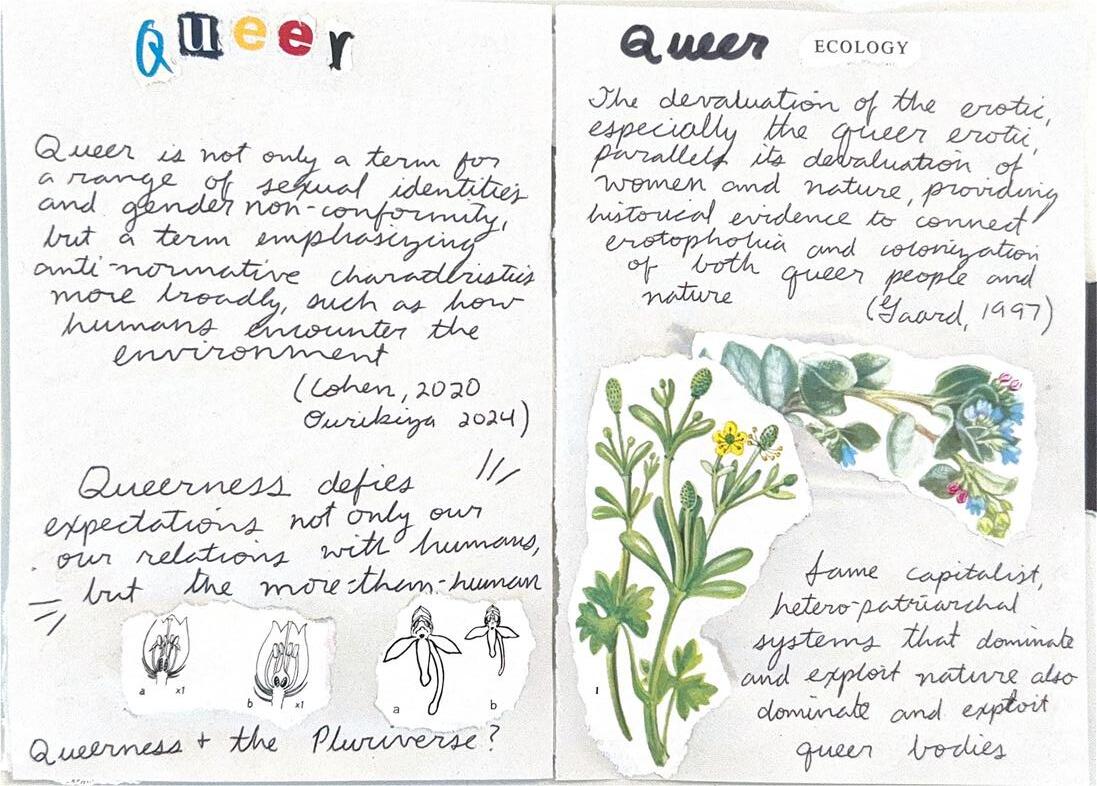 Queer
Queer is not only a term for
a range of sexual identities
and gender non-conformity,
but a term emphasizing
anti-normative characteristics
more broadly, such as how
humans encounter the
environment
(Cohen, 2020
Ourikiya 2024)
Queerness defies
expectations not only our
our relations with humans,
but the more-than-human
a x1
b x1
a
b
Queerness + the Pluriverse?
Queer ECOLOGY
The devaluation of the erotic,
especially the queer erotic,
parallels its devaluation of
women and nature, providing
historical evidence to connect
erotophobia and colonization
of both queer people and
nature
(Gaard, 1997)
1
Same capitalist,
hetero-patriarchal
systems that dominate
and exploit nature also
dominate and exploit
queer bodies